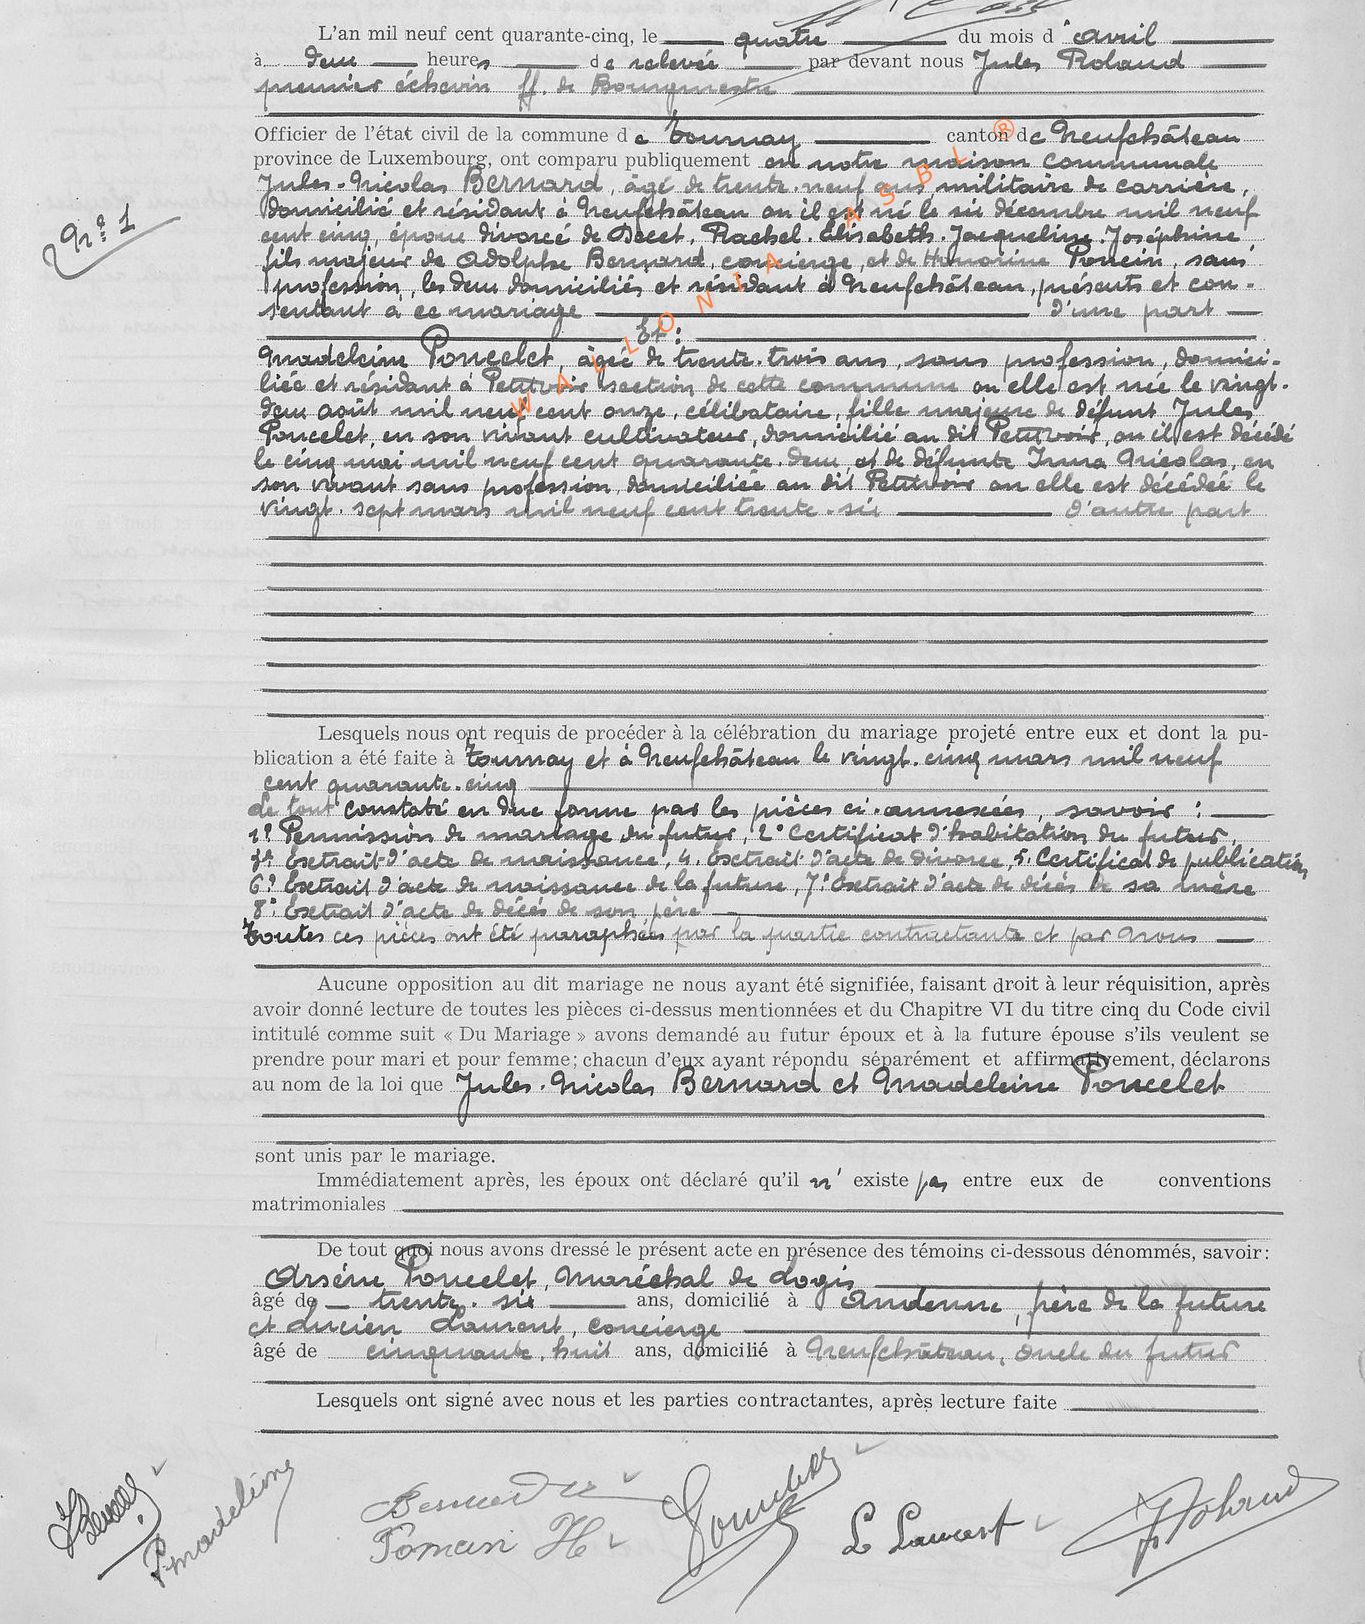 L'an mil neuf cent quarante-cinq, le quatre du mois d'avril
à deux heures de relevée par devant nous Jules Roland
premier échevin ff. de Bourgmestre
Officier de l'état civil de la commune de Tournay canton de Neufchâteau
province de Luxembourg, ont comparu publiquement en notre maison communale
Jules-Nicolas Bernard, âgé de trente-neuf ans, militaire de carrière,
domicilié et résidant à Neufchâteau où il est né le six décembre mil neuf
N° 1
cent cinq, époux divorcé de Decet, Rachel-Elisabeth-Jacqueline-Joséphine,
fils majeur de Adolphe Bernard, concierge, et de Honorine Poncin, sans
profession, les deux domiciliés et résidant à Neufchâteau, présents et con-
sentant à ce mariage d'une part
Et :
Madeleine Poncelet, âgée de trente-trois ans, sans profession, domici-
liée et résidant à Petitvoir section de cette commune où elle est née le vingt-
deux août mil neuf cent onze, célibataire, fille majeure de défunt Jules
Poncelet, en son vivant cultivateur, domicilié au dit Petitvoir, où il est décédé
le cinq mai mil neuf cent quarante-deux, et de défunte Irma Nicolas, en
son vivant sans profession, domiciliée au dit Petitvoir où elle est décédée le
vingt-sept mars mil neuf cent trente-six d'autre part
WALLONIA ASBL ®
Lesquels nous ont requis de procéder à la célébration du mariage projeté entre eux et dont la pu-
blication a été faite à Tournay et à Neufchâteau le vingt-cinq mars mil neuf
cent quarante-cinq
Le tout constaté en due forme par les pièces ci-annexées, savoir :
1° Permission de mariage du futur, 2° Certificat d'habitation du futur
3° Extrait d'acte de naissance, 4. Extrait d'acte de divorce, 5. Certificat de publication,
6° Extrait d'acte de naissance de la future, 7° Extrait d'acte de décès de sa mère
8° Extrait d'acte de décès de son père
Toutes ces pièces ont été paraphées par la partie contractante et par Nous
Aucune opposition au dit mariage ne nous ayant été signifiée, faisant droit à leur réquisition, après
avoir donné lecture de toutes les pièces ci-dessus mentionnées et du Chapitre VI du titre cinq du Code civil
intitulé comme suit « Du Mariage » avons demandé au futur époux et à la future épouse s'ils veulent se
prendre pour mari et pour femme; chacun d'eux ayant répondu séparément et affirmativement, déclarons
au nom de la loi que Jules-Nicolas Bernard et Madeleine Poncelet
sont unis par le mariage.
Immédiatement après, les époux ont déclaré qu'il n'existe pas entre eux de conventions
matrimoniales
De tout quoi nous avons dressé le présent acte en présence des témoins ci-dessous dénommés, savoir:
Arsène Poncelet, Maréchal de Logis
âgé de trente-six ans, domicilié à Andenne, frère de la future
et Lucien Laurent, concierge
âgé de cinquante-huit ans, domicilié à Neufchâteau, oncle du futur
Lesquels ont signé avec nous et les parties contractantes, après lecture faite
P. Madeleine
Bernard
Poncin H
L Laurent
J Roland